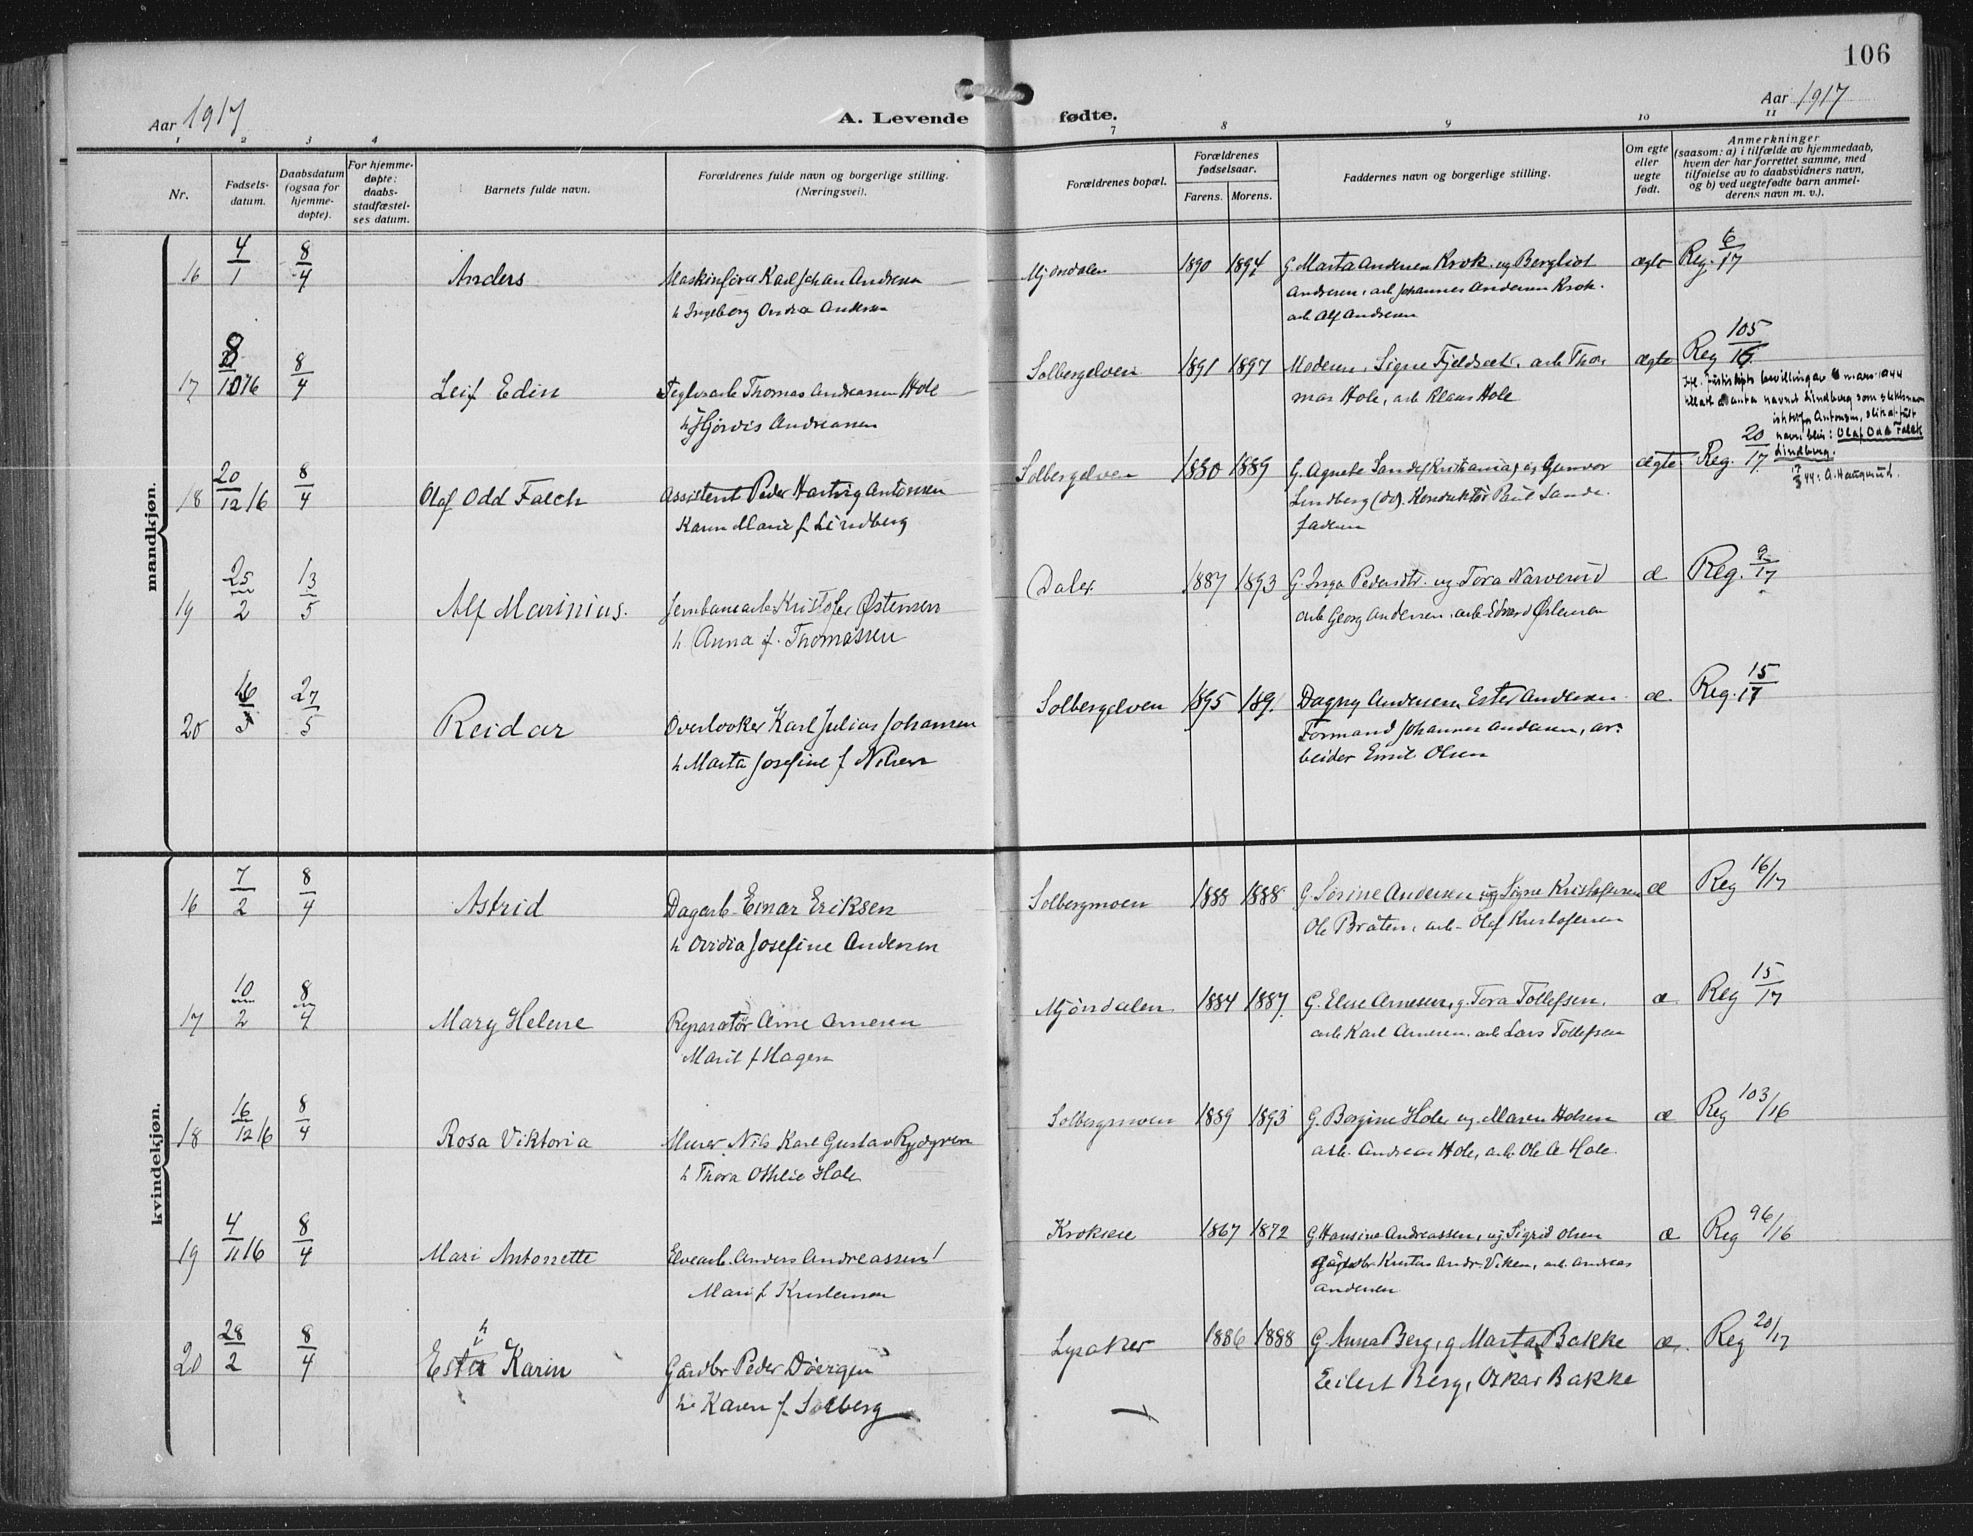 106
Aar 1917
A. Levende fødte.
Aar 1917
1 2 3 4 7 8 9 10 11
Nr.
Fødsels-
datum.
Daabsdatum
(ogsaa for
hjemme-
døpte).
For hjemme-
døpte:
daabs-
stadfæstel-
ses datum.
Barnets fulde navn.
Forældrenes fulde navn og borgerlige stilling.
(Næringsvei).
Forældrenes bopæl.
Forældrenes
fødselsaar.
Farens. Morens.
Faddernes navn og borgerlige stilling.
Om egte
eller
uegte
født.
Anmerkninger
(saasom: a) i tilfælde av hjemmedaab,
hvem der har forrettet samme, med
tilføielse av to daabsvidners navn,
og b) ved uegtefødte barn anmel-
derens navn m. v.).
mandkjøn.
16 4/1 8/4 Anders Maskinfører Karl Johan Andresen Mjøndalen 1890 1894 G. Marta Andersen Krok og Bergliot ægte Reg. 6/17
Andresen, arb Johannes Andersen Krok.
h Ingeborg Andersen
arb Alf Andresen
17 8/10 16 8/4 Leif Edin Teglverksarb Thomas Andreassen Hole Solbergelven 1891 1897 Moderen, Signe Fjeldsæt, arb Thor ægte Reg 105/16
mas Hole, arb Klaus Hole
h Hjørdis Andreassen
Ifl. Justisdpts bevilling av 6 mars 1944
tillatt å anta navnet Lindberg som slektsnavn
istedenfor Antonsen, slik at fullt
navn blir: Olaf Odd Falck
Lindberg.
17/3 44: A. Haugerud.
18 20/12 16 8/4 Olaf Odd Falch Assistent Peder Hartvig Antonsen Solbergelven 1880 1889 G. Agnete Sande (Kristiania) og Gunvor ægte Reg. 20/17
Karen Marie f. Lindberg
Lindberg (do). Konduktør Paul Sande.
faderen
19 25/2 13/5 Alf Marinius. Jernbanearb Kristofer Østensen Daler 1887 1893 G. Inga Pedersdtr. og Tora Narverud æ Reg. 9/17
h Anna f. Thomassen
arb Georg Andersen, arb Edvard Østensen
20 27/5 Reidar Overlooker Karl Julius Johansen Solbergelven 1895 189 Dagny Andersen, Ester Andersen æ Reg. 15/17
h Marta Josefine f Nilsen
Formand Johannes Andersen, ar-
beider Emil Olsen
kvindekjøn.
16 7/2 8/4 Astrid Dagarb. Einar Eriksen Solbergmoen 1888 1888 G Sorine Andersen og Signe Kristofersen æ Reg 16/17
h Ovidia Josefine Andersen
Ole Bråten, arb. Olaf Kristofersen
17 10/2 8/4 Mary Helene Reparatør Arne Arnesen Mjøndalen 1884 1887 G. Elise Arnesen, g. Tora Tollefsen. æ Reg 15/17
Marit f Hagen
arb Karl Arnesen. arb Lars Tollefsen
18 16/12 16 8/4 Rosa Viktoria Murer Nils Karl Gustav Rydgren Solbergmoen 1889 1893 G. Borgine Hole og Maren Holsen æ Reg 103/16
h Thora Othilie Hole
arb. Andreas Hole, arb Ole A Hole.
19 4/11 16 8/4 Mari Antonette Elvearb. Anders Andreassen Kroksæe 1867 1872 G Hansine Andreassen, og Sigrid Olsen æ Reg 96/16
Mari f Kristensen
gårdbr Kristas Andr. Viken, arb. Andreas
Andersen
20 28/2 8/4 Ester Karin Gårdbr Peder Dvergen Lysaker 1886 1888 G Anna Berg, g Marta Bakke æ. Reg 20/17
h. Karen f. Solberg
Eilert Berg, Oskar Bakke